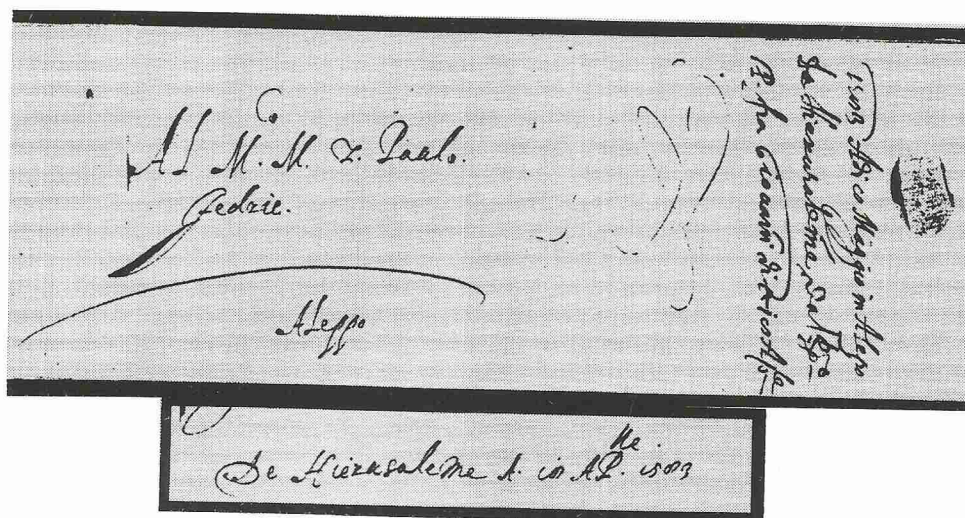 Al M.co M. Z. Paulo.
Fedrie.
Aleppo
1583 Adi 20 Maggio in Alepo
da Hierusaleme, dal
P. fra Giovanni di
De Hierusaleme A. in APlle. 1583